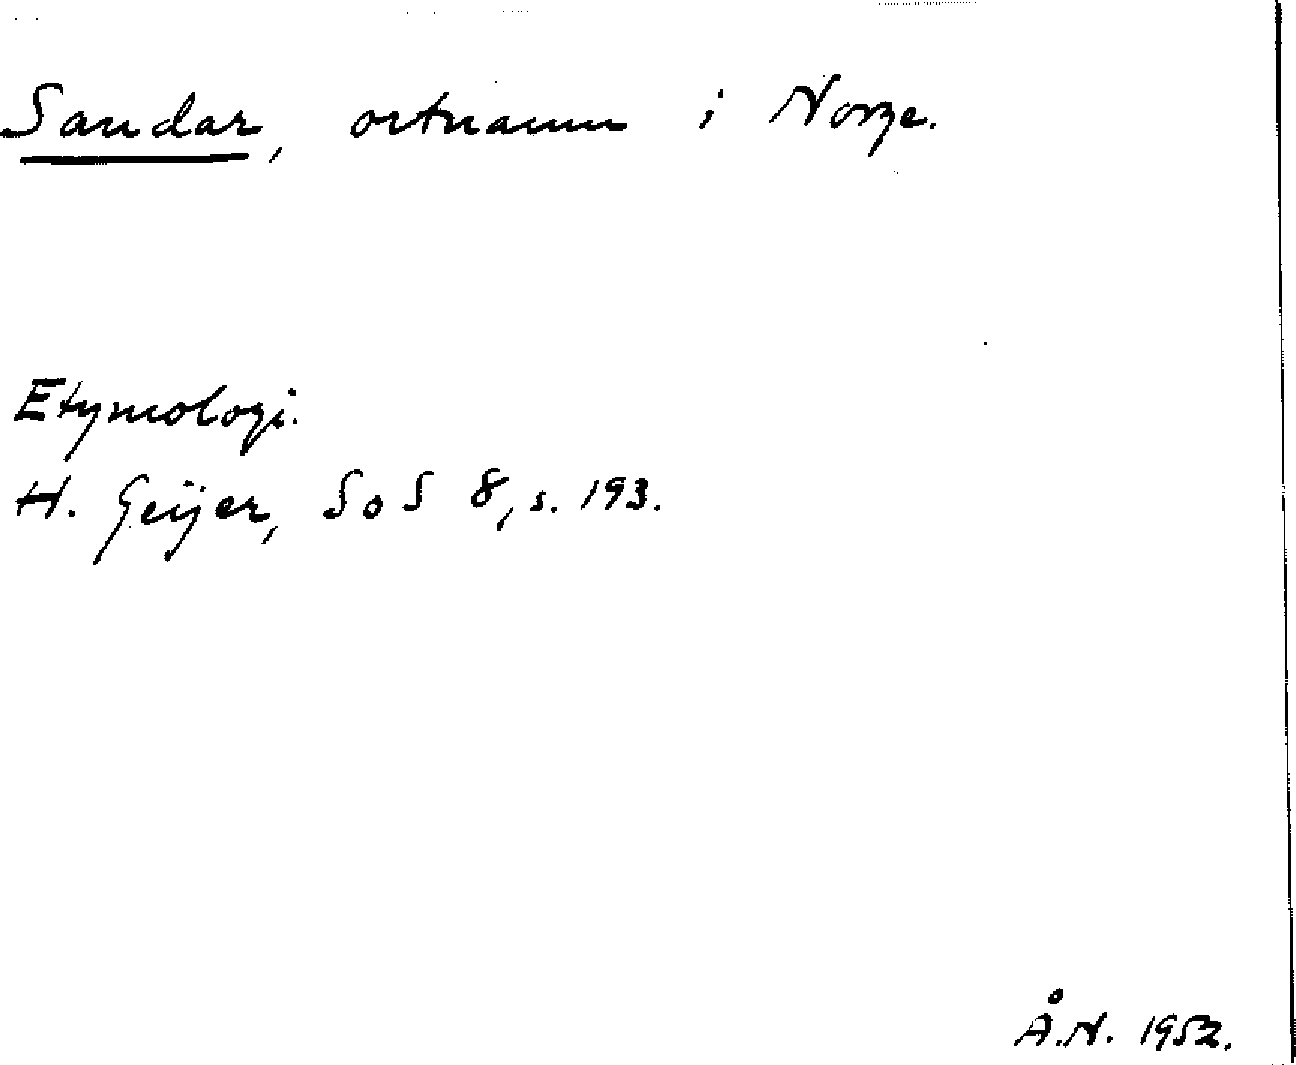 Sandar, ortnamn i Norge.
Etymologi.
H. Geijer, SoS 8, s. 193.
Å.N. 1952.